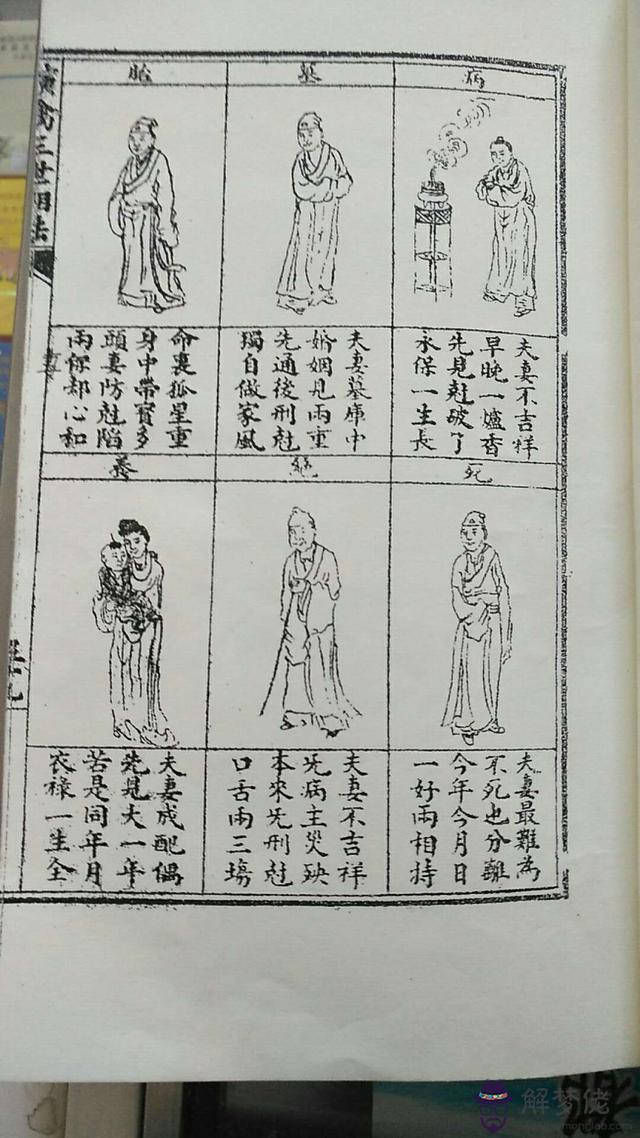 病
夫妻不吉祥
早晚一爐香
先見尅破了
永保一生長
墓
夫妻墓庫中
婚姻見兩重
先通後刑尅
獨自做家風
胎
命裏孤星重
身中帶寳多
頭妻防尅陷
兩保却心和
死
夫妻最難為
不死也分離
今年今月日
一好兩相持
絕
夫妻不吉祥
旡病主災殃
本來旡刑尅
口舌兩三塲
養
夫妻成配偶
先見大一年
苦是同年月
衣祿一生全
演禽三世相法
解梦佬